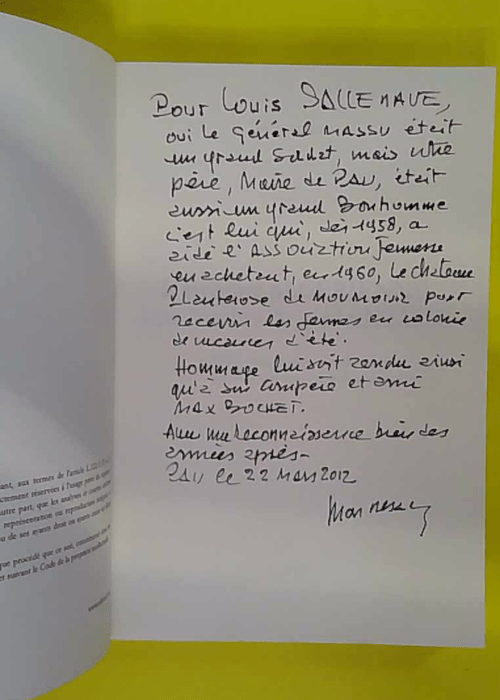 Pour Louis SALLENAVE,
oui le Général MASSU était
un grand Soldat, mais votre
père, Maire de PAU, était
aussi un grand Bonhomme
c'est lui qui, dès 1958, a
aidé l'ASSOCIATION Jeunesse
en achetant, en 1960, le chateau
de MOUMOUR pour
recevoir les jeunes en colonie
de vacances d'été.
Hommage lui soit rendu ainsi
qu'à son compère et ami
MAX BOCHET.
Avec ma reconnaissance bien des
années après-
PAU le 22 Mars 2012
ant, aux termes de l'article L.
ctement réservées à l'usage privé
autre part, que les analyses et courtes
représentation ou reproduction
ou de ses ayants droit ou ayants cause
que procédé que ce soit,
et suivant le Code de la propriété intellectuelle